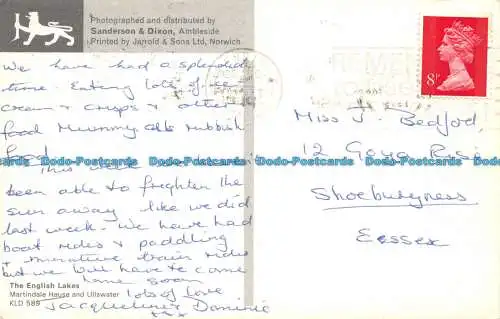 Photographed and distributed by
Sanderson & Dixon, Ambleside
Printed by Jarrold & Sons Ltd, Norwich
We have had a splendid
time. Eating lots of ice
cream & crisps & other
food Mummy calls rubbish
food
This week
been able to frighten the
sun away like we did
last week. We have had
boat rides & paddling
& miniature train rides
but we will have to come
home soon
lots of love
Jacqueline & Dominic
xxx
The English Lakes
Martindale Hause and Ullswater
KLD 589
8P
REMEMBER
Miss J. Bedford,
12 Goya Rise
Shoeburyness
Eessex
Dodo-Postcards Dodo-Postcards Dodo-Postcards Dodo-Postcards Dodo-Postcards